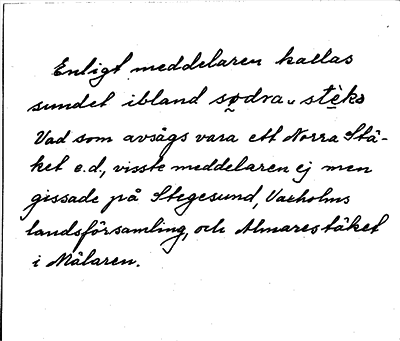 Enligt meddelaren kallas
sundet ibland sø̰dra stè̱kə
Vad som avsågs vara ett Norra Stä-
ket e.d., visste meddelaren ej men
gissade på Stegesund, Vaxholms
landsförsamling, och Almarestäket
i Mälaren.